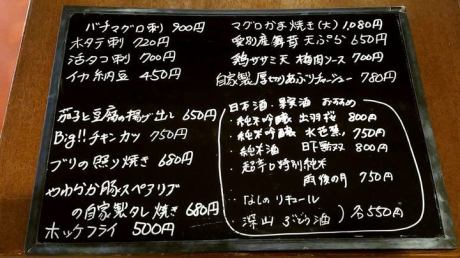 バチマグロ刺 900円
ホタテ刺 720円
活タコ刺 700円
イカ納豆 450円
茄子と豆腐の揚げ出し 650円
Big!! チキンカツ 750円
ブリの照り焼き 680円
やわらか豚スペアリブ
の自家製タレ焼き 680円
ホッケフライ 500円
マグロかま焼き(大) 1,080円
愛別産舞茸 天ぷら 650円
鶏ササミ天 梅肉ソース 700円
自家製厚切りあぶりチャーシュー 780円
日本酒・果実酒 おすすめ
・純米吟醸 出羽桜 800円
・純米吟醸 水芭蕉 750円
・純米酒 日下無双 800円
・超辛口特別純米
雨後の月 750円
・なしのリキュール
・深山ぶどう酒 各550円